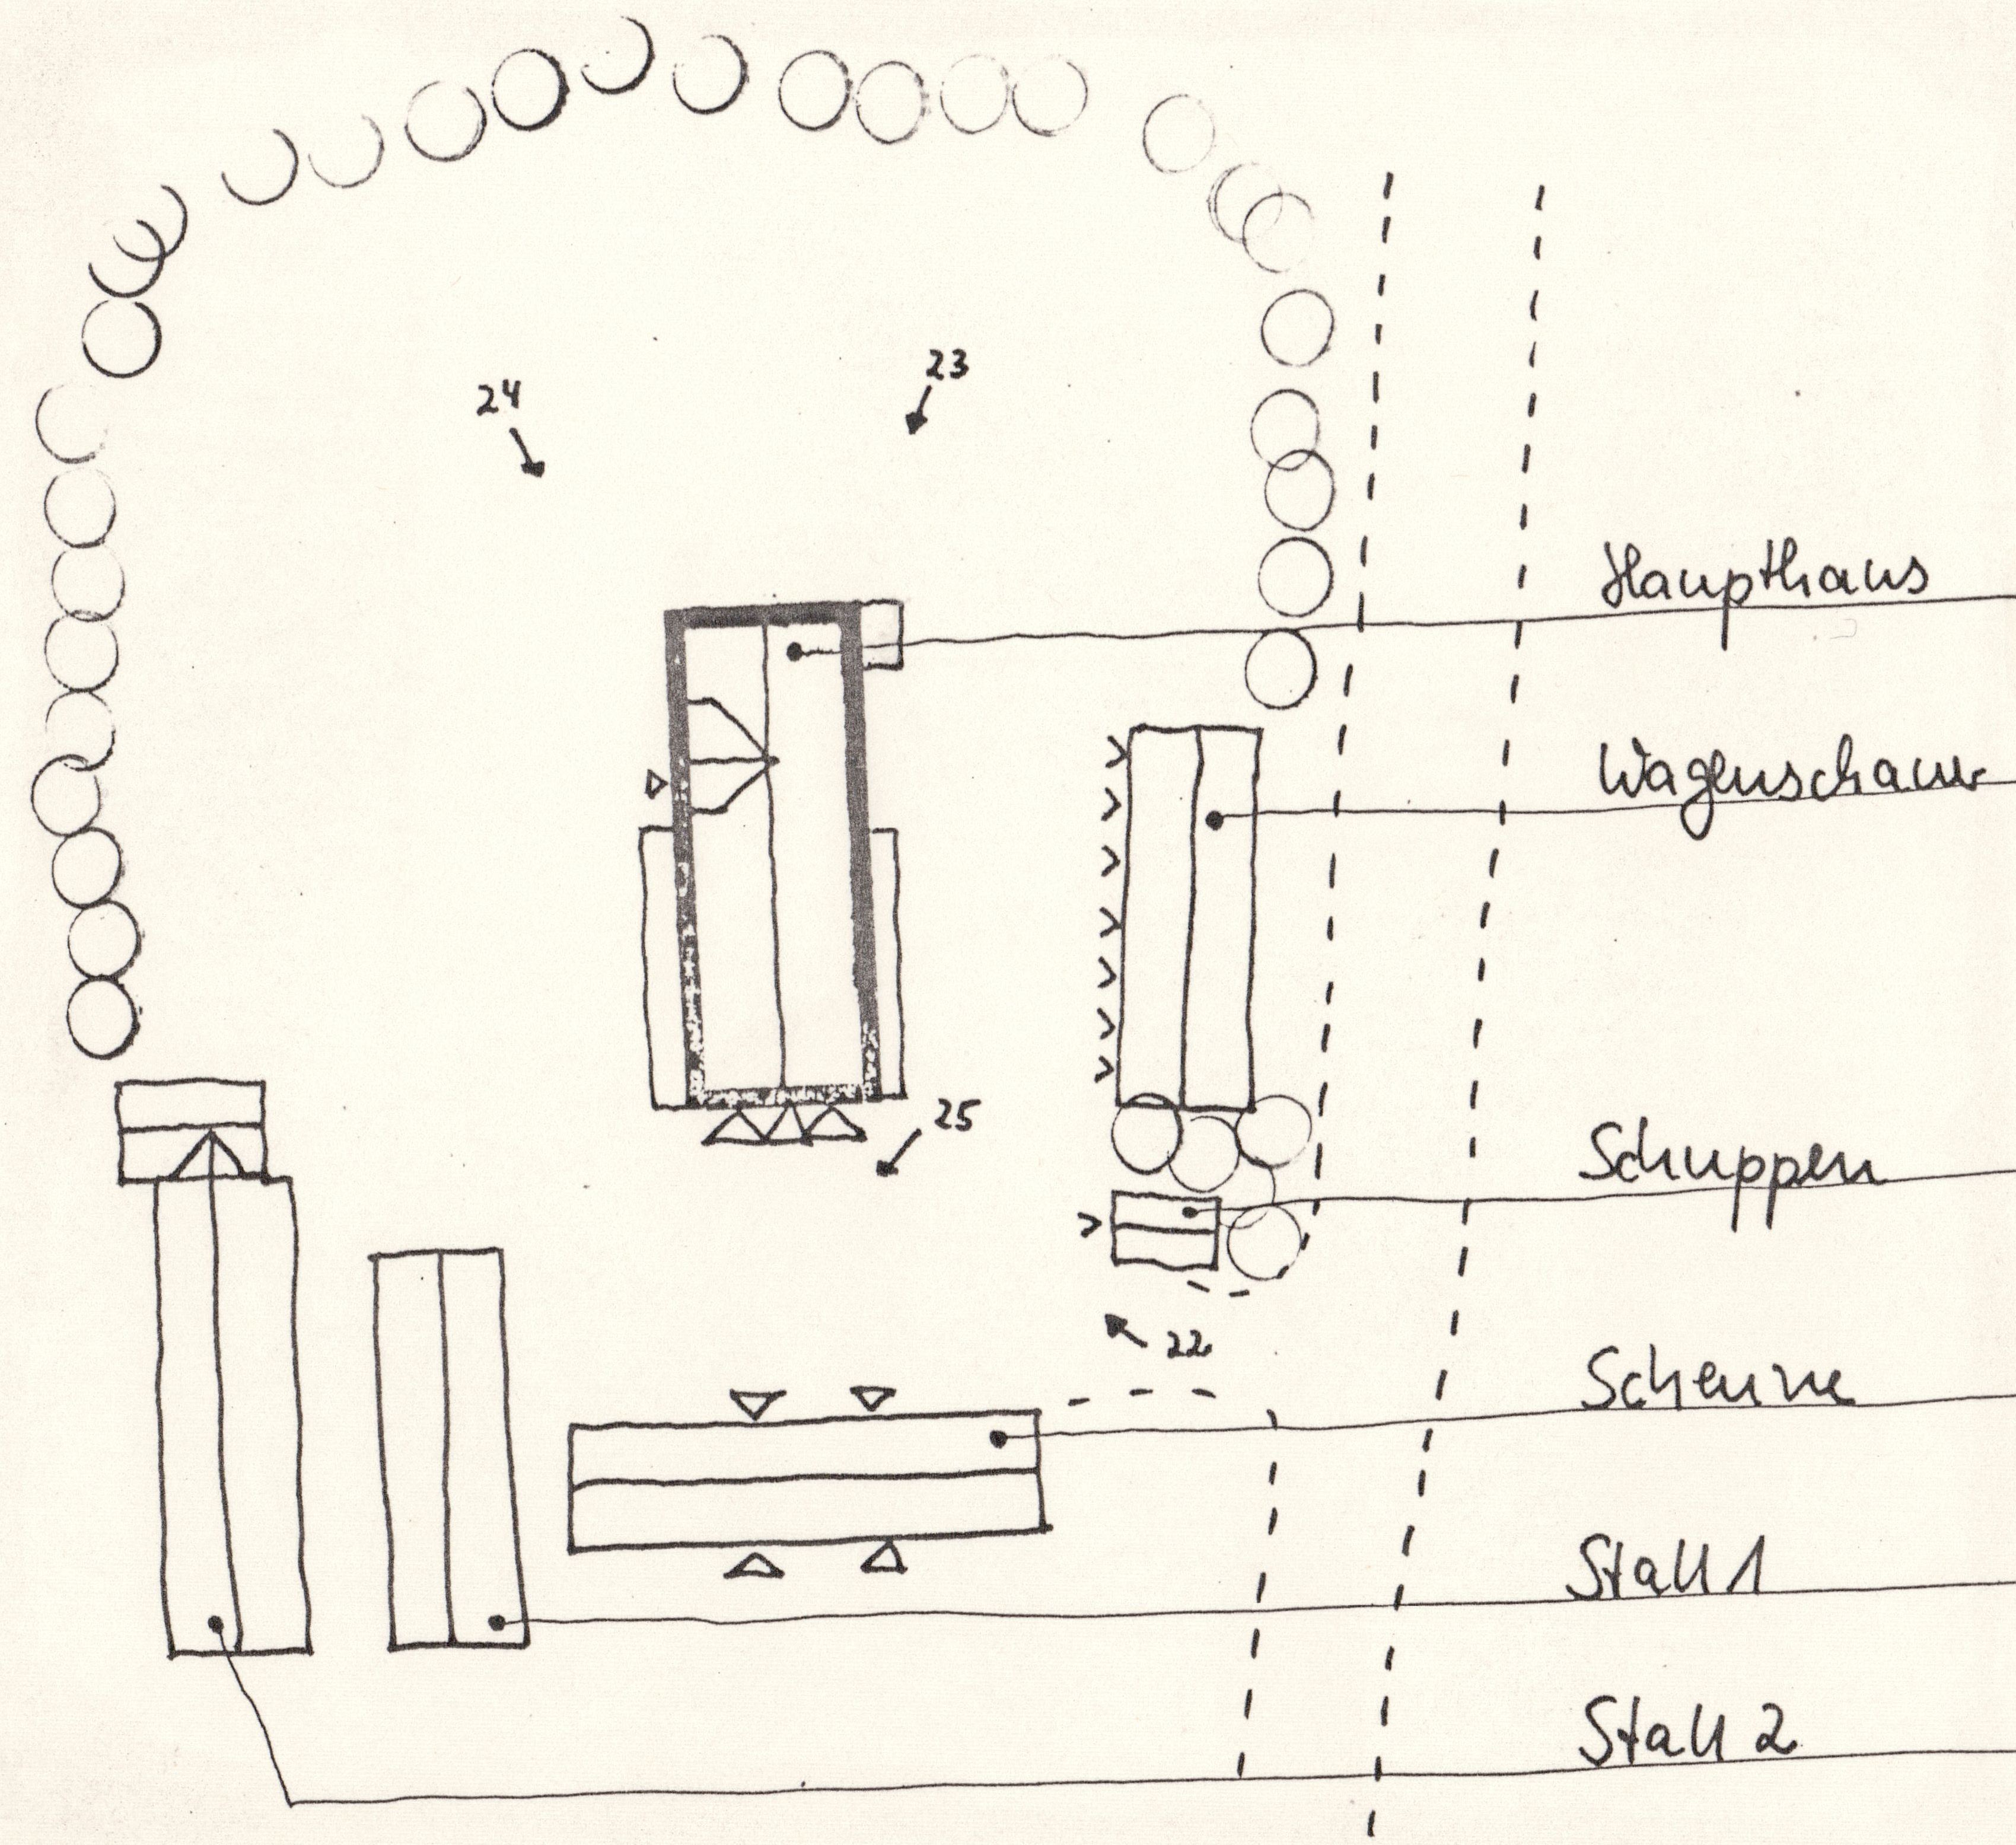 23
24
Haupthaus
Wagenschauer
25
Schuppen
22
Scheune
Stall 1
Stall 2